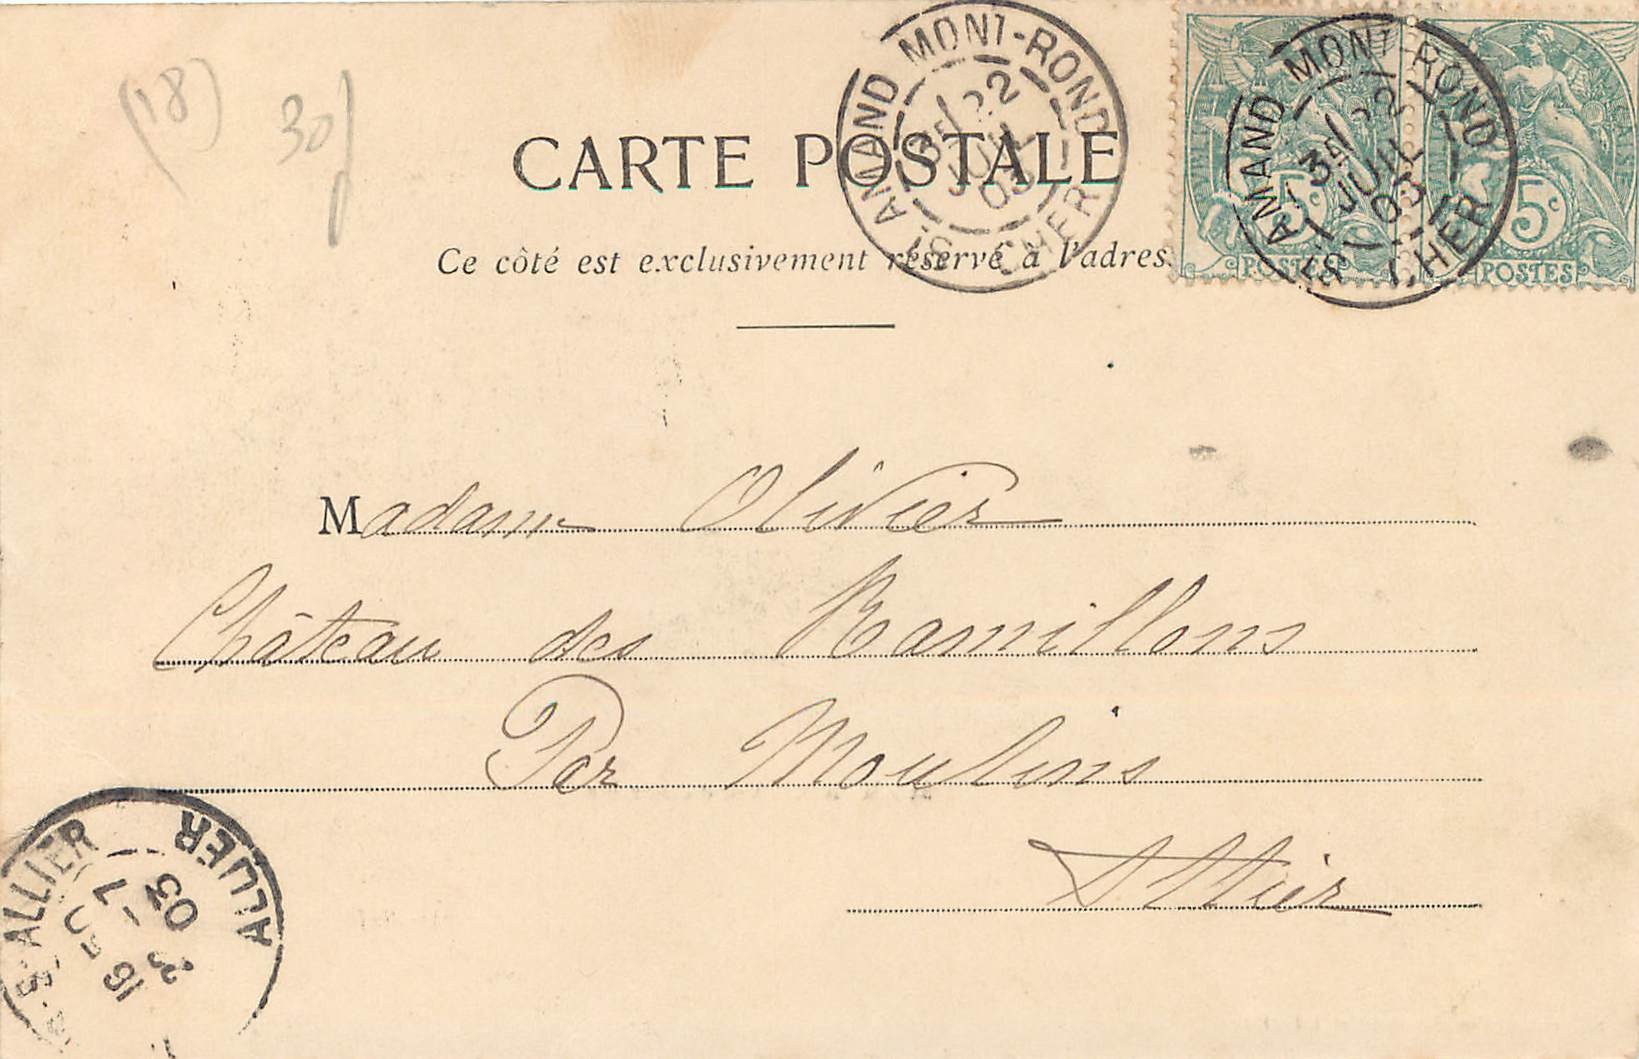 (18)
30
CARTE POSTALE
Ce côté est exclusivement réservé à l'adres
ST AMAND MONT-ROND
3E / 22
JUIL
03
CHER
ST AMAND MONT-ROND
3E / 22
JUIL
03
CHER
5c
POSTES
5c
POSTES
Madame Olivier
Château des Ramillons
Par Moulins
Allier
S-ALLIER
16
03
ALLIER